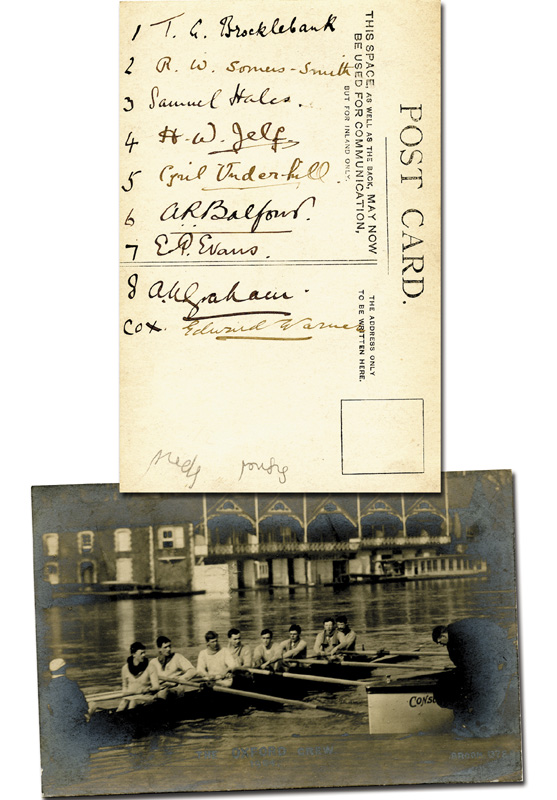 1 T. G. Brocklebank
2 R. W. Somers-Smith
3 Samuel Hales.
4 H. W. Jelf
5 Cyril Underhill.
6 A.R. Balfour.
7 E. P. Evans.
8 A. Graham.
COX. Edward Warner
POST CARD.
THIS SPACE, AS WELL AS THE BACK, MAY NOW
BE USED FOR COMMUNICATION,
BUT FOR INLAND ONLY.
THE ADDRESS ONLY
TO BE WRITTEN HERE.
CREW